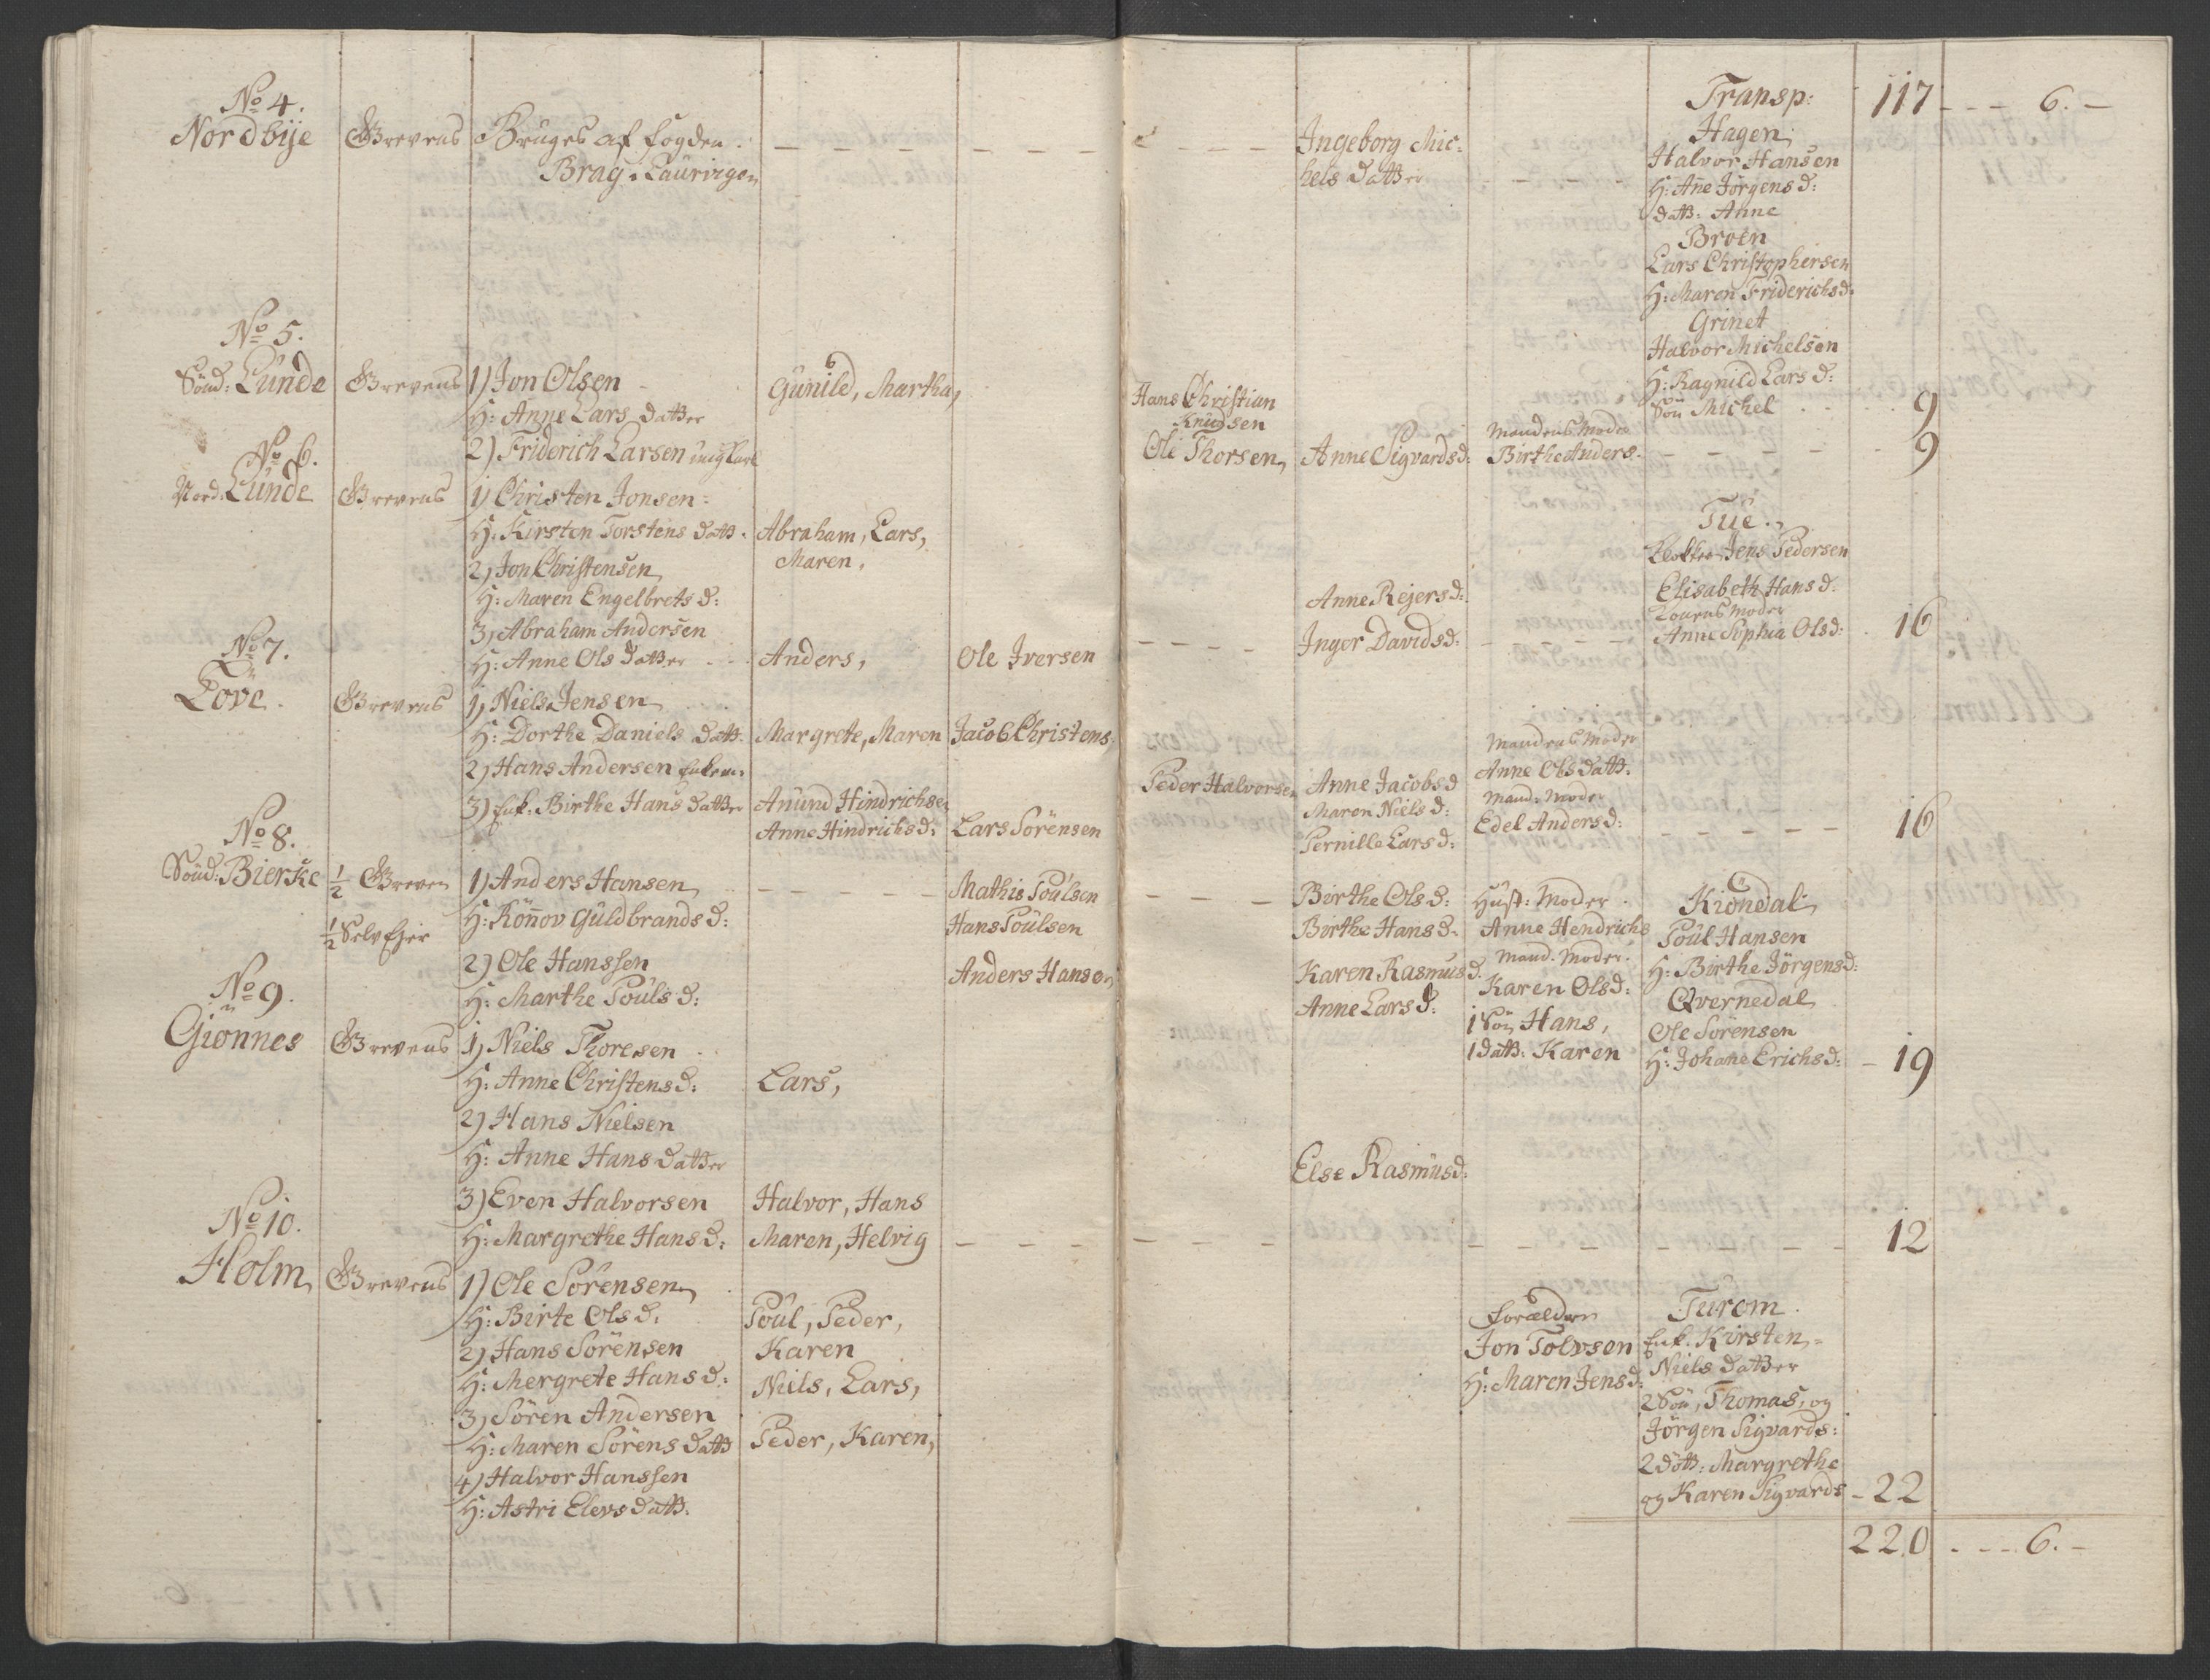 No 4.
Nordbÿe
Grevens
Bruges af fogden
Brag. Laurvigen
Ingeborg Mic=
hels datter
Transp:
117 - - - 6. -
Hagen
Halvor Hansen
H: Ane Jörgens d:
datt: Anne
Broen
Lars Christophersen
H: Maren Friderichsd:
Grinet
Halvor Michelsen
H: Ragnild Lars d:
Sön Michel
9
No 5.
Sönd: Lunde
Grevens
1) Jon Olsen
Gunild, Martha,
H: Anne Lars datter
2) Friderich Larsen ung Karl
Hans Christian
Knudsen
No 6.
Nord: Lunde
Grevens
1) Christen Jonsen
H: Kirsten Torstens datt.
Abraham, Lars,
2) Jon Christensen
Maren,
H: Maren Engelbrets d:
3) Abraham Andersen
H: Anne Ols datter
Anders,
Ole Iversen
Ole Thorsen
Anne Sigvardsd:
Mandens Moder
Birthe Anders.
9
Anne Rejers d:
Inger Davidsd:
Tue.
Klokker Jens Pedersen
Elisabeth Hans d:
Konens Moder
Anne Sophia Olsd:
16
No 7.
Löve.
Grevens
1) Niels Jensen
H: Dorthe Daniels datt.
Margrete, Maren
Jacob Christens.
2) Hans Andersen Enkem:
3) Enk: Birthe Hans datter
Anund Hindrichsen
Anne Hindrichsd:
Lars Sörensen
Peder Halvorsen
Anne Jacobsd
Maren Niels d:
Pernille Lars d:
Mandens Moder
Anne Ols datt.
Mand: Moder
Edel Anders d:
16
No 8.
Sönd: Bierke
1/2 Greven
1/2 Selv Ejer
1) Anders Hansen
H: Rönnov Guldbrands d:
2) Ole Hanssen
H: Marthe Pouls d:
Mathis Poulsen
Hans Poulsen
Anders Hansen
Birthe Ols d:
Birthe Hans d.
Karen Rasmus d.
Anne Lars d:
Hust: Moder
Anne Hendrichs
Mand. Moder.
Karen Olsd:
1 Sön Hans,
1 datt: Karen
Kiöndal
Poul Hansen
H: Birthe Jörgensd:
Qvernedal
Ole Sörensen
H: Johane Erichsd:
19
No 9.
Giönnes
Grevens
1) Niels Thoresen
H: Anne Christens d:
Lars,
2) Hans Nielsen
H: Anne Hans datter
3) Even Halvorsen
Halvor, Hans
H: Margrethe Hans d:
Maren, Helvig
Else Rasmusd:
12
No 10.
Holm
Grevens
1) Ole Sörensen
H: Birte Ols d:
Poul, Peder,
2) Hans Sörensen
Karen
H: Mergrete Hans d:
Niels, Lars,
3) Sören Andersen
H: Maren Sörens datt
Peder, Karen,
4) Halvor Hanssen
H: Astri Elevs datt.
Forældre
Jon Tolvsen
H: Maren Jens d:
Turom
Enk. Kirsten
Niels datter
2 Sön, Thomas, og
Jörgen Sigvards:
2 dött: Margrethe
og Karen Sigvards
22
220 - - - 6. -